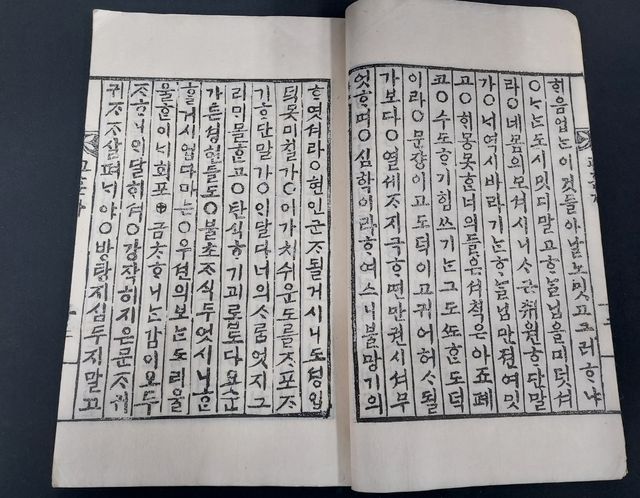 희음업는이것들아날노밋고그러ᄒᆞ냐
○나는도시밋디말고ᄒᆞᄂᆞᆯ님을미덧셔
라○네몸의모셔시니ᄉᆞ근췌원ᄒᆞ단말
가○ᄂᆡ역시바라기ᄂᆞᆫᄒᆞᄂᆞᆯ님만젼여밋
고○ᄒᆡ몽못ᄒᆞᆫ너의들은셔ᄎᆡᆨ은아죠폐
코○수도ᄒᆞ기힘쓰기ᄂᆞᆫ그도ᄯᅩᄒᆞᆫ도덕
이라○문쟝이고도덕이고귀어허ᄉᆞ될
가보다○열세ᄌᆞ지극ᄒᆞ면만권시셔무
엇ᄒᆞ며○심학이라ᄒᆞ여스니불망기의
ᄒᆞ엿셔라○현인군ᄌᆞ될거시니도셩입
덕못미칠가○이가치쉬운도를ᄌᆞ포ᄌᆞ
기ᄒᆞ단말가○ᄋᆡ달다너의ᄉᆞ룸엇지그
리ᄆᆡ몰ᄒᆞᆫ고○탄식ᄒᆞ기괴롭도다요순
가튼셩현들도○불초ᄌᆞ식두엇시니ᄒᆞᆫ
ᄒᆞᆯ거시업다마ᄂᆞᆫ○우션의보ᄂᆞᆫ도리울
울ᄒᆞᆫ이ᄂᆡ회포⊕금ᄎᆞᄒᆞ니ᄂᆞᆫ감이오두
ᄌᆞᄒᆞ니ᄋᆡ달ᄒᆡ셔○강작히지은문ᄌᆞ귀
귀ᄌᆞᄌᆞ살펴ᄂᆡ야○방탕지심두지말고